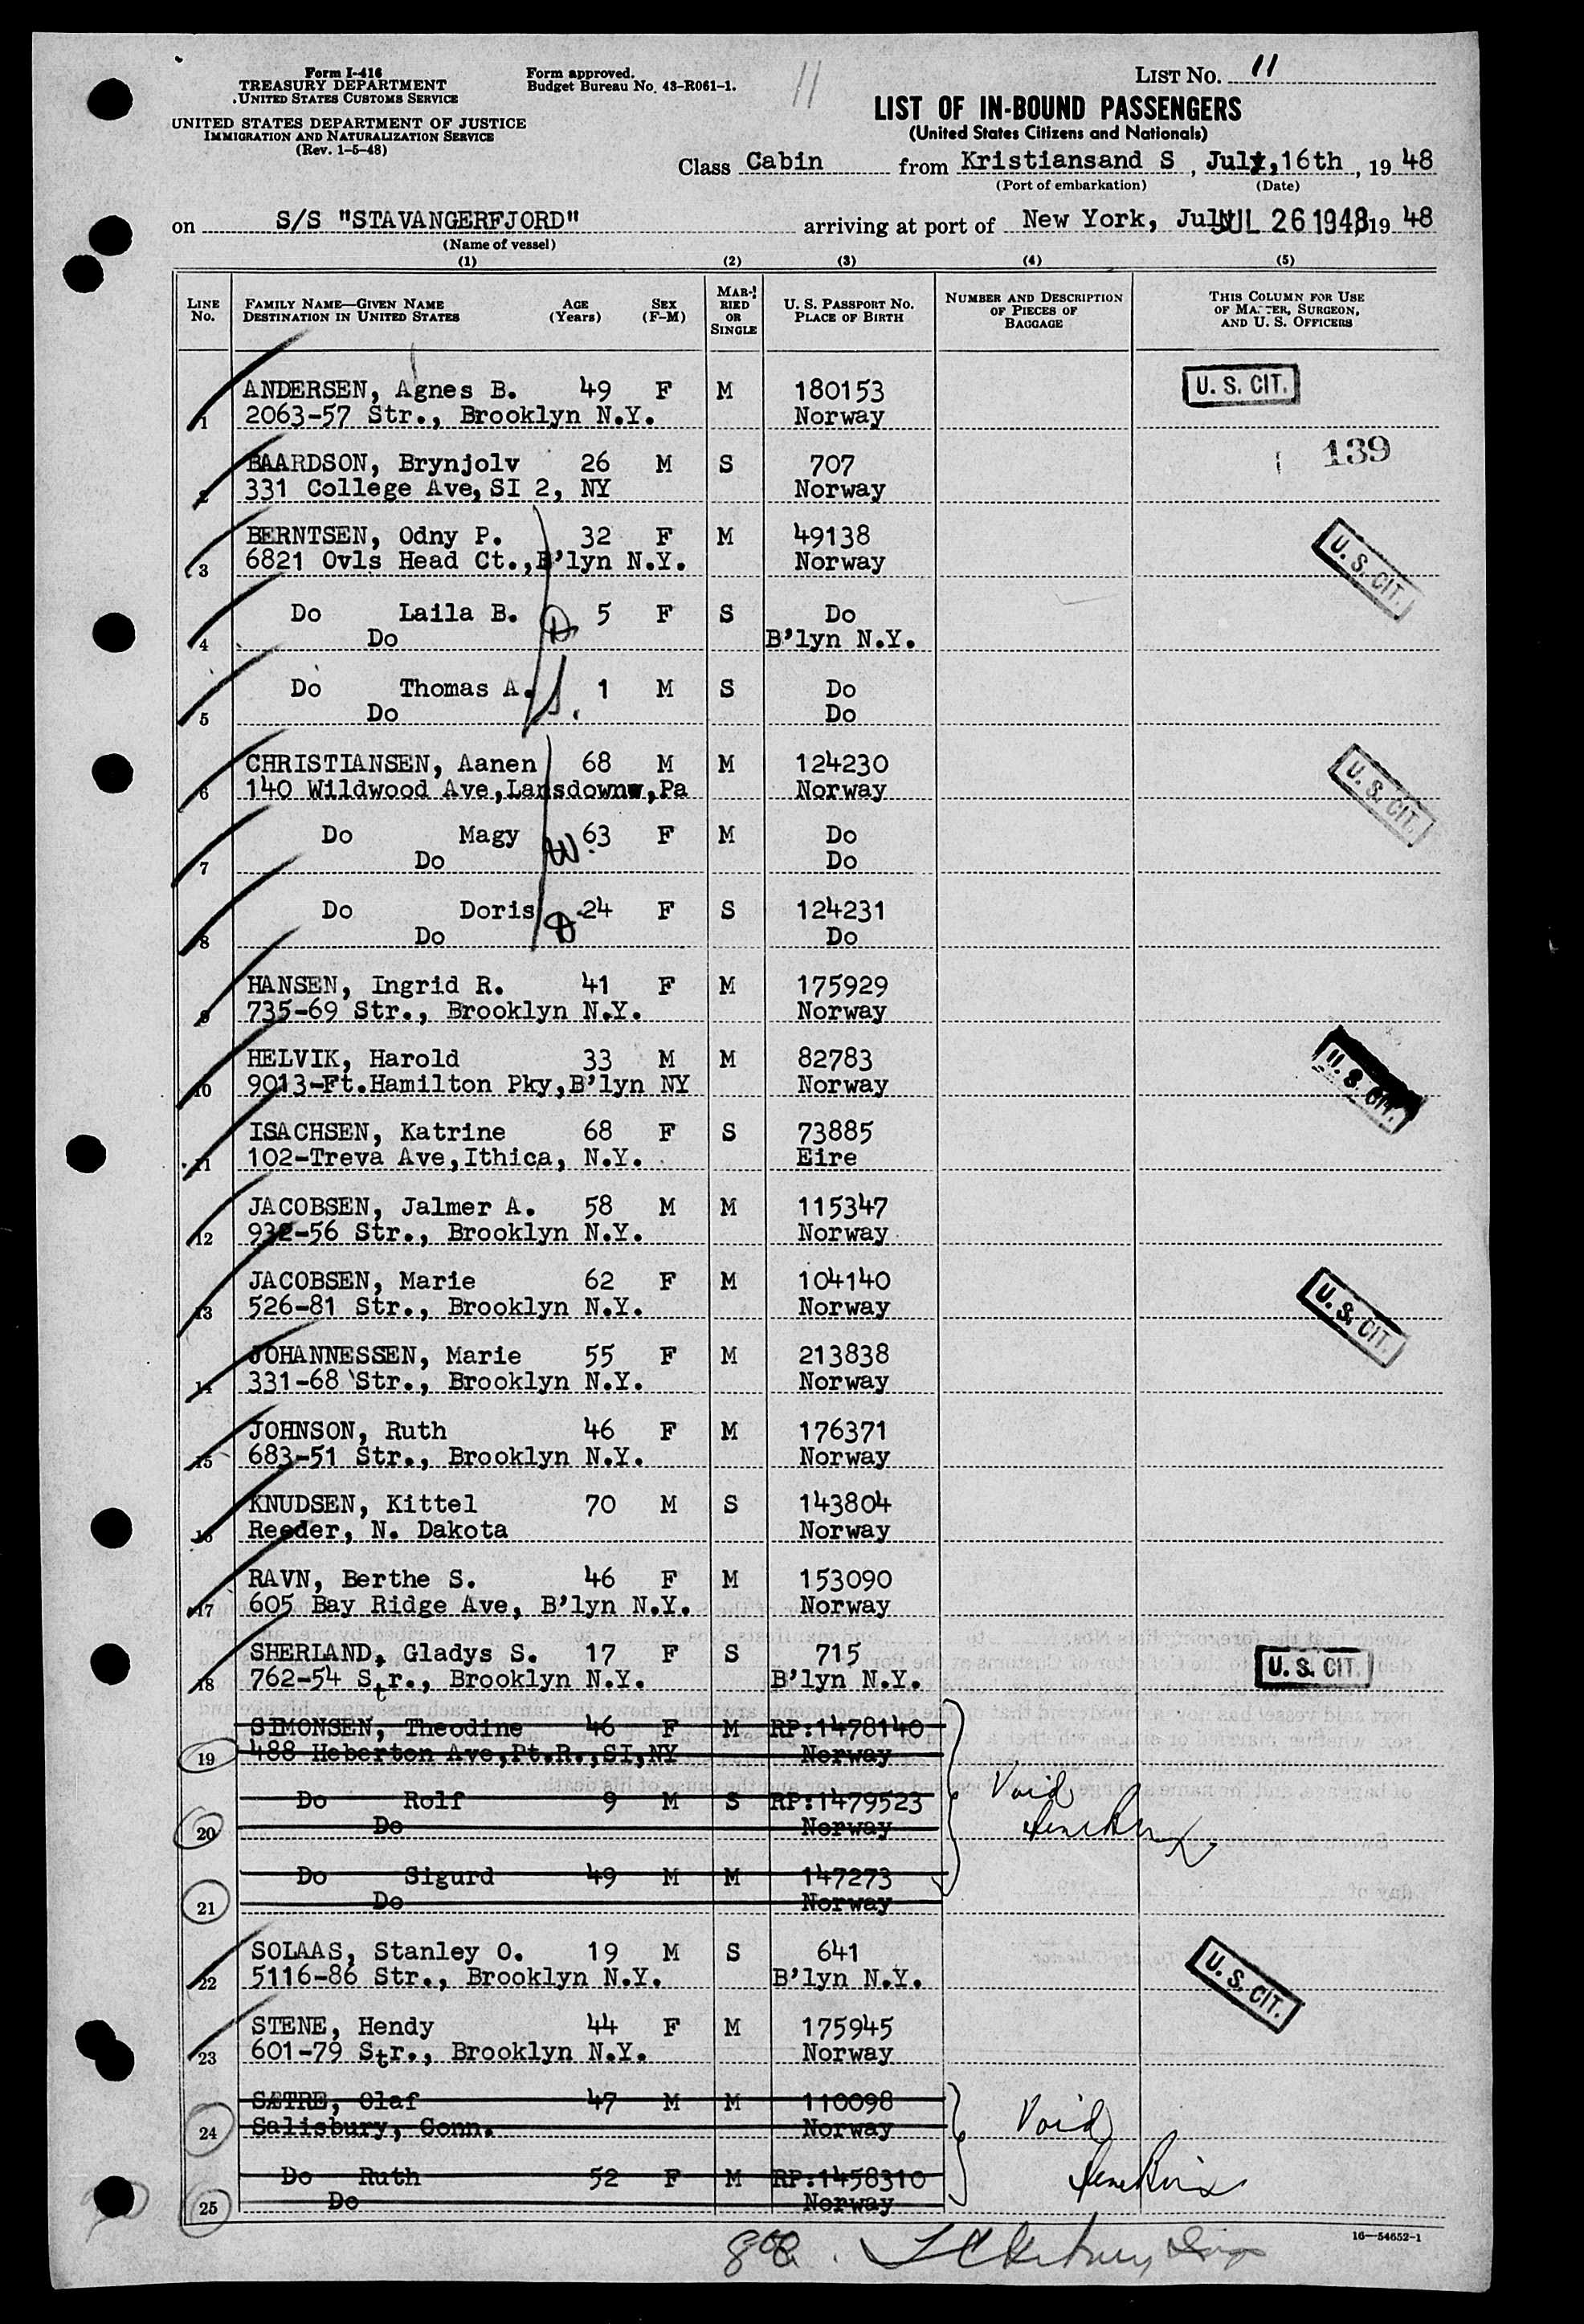 Form I-416
TREASURY DEPARTMENT
UNITED STATES CUSTOMS SERVICE
UNITED STATES DEPARTMENT OF JUSTICE
IMMIGRATION AND NATURALIZATION SERVICE
(Rev. 1-5-48)
Form approved.
Budget Bureau No. 43-R061-1.
11
LIST No. 11
LIST OF IN-BOUND PASSENGERS
(United States Citizens and Nationals)
Class Cabin from Kristiansand S, July, 16th, 1948
(Port of embarkation) (Date)
on S/S "STAVANGERFJORD" arriving at port of New York, July JUL 26 1948, 1948
(Name of vessel)
(1) (2) (3) (4) (5)
LINE No. FAMILY NAME—GIVEN NAME DESTINATION IN UNITED STATES AGE (Years) SEX (F-M) MARRIED OR SINGLE U. S. PASSPORT No. PLACE OF BIRTH NUMBER AND DESCRIPTION OF PIECES OF BAGGAGE THIS COLUMN FOR USE OF MASTER, SURGEON, AND U. S. OFFICERS
ANDERSEN, Agnes B. 49 F M 180153 U. S. CIT.
1 2063-57 Str., Brooklyn N.Y. Norway
BAARDSON, Brynjolv 26 M S 707 139
2 331 College Ave, SI 2, NY Norway
BERNTSEN, Odny P. 32 F M 49138 U. S. CIT.
3 6821 Ovls Head Ct., B'lyn N.Y. Norway
Do Laila B. D 5 F S Do
4 Do B'lyn N.Y.
Do Thomas A. S. 1 M S Do
5 Do Do
CHRISTIANSEN, Aanen 68 M M 124230 U. S. CIT.
6 140 Wildwood Ave, Lansdowne, Pa Norway
Do Magy W. 63 F M Do
7 Do Do
Do Doris D 24 F S 124231
8 Do Do
HANSEN, Ingrid R. 41 F M 175929
9 735-69 Str., Brooklyn N.Y. Norway
HELVIK, Harold 33 M M 82783 U. S. CIT.
10 9013-Ft.Hamilton Pky, B'lyn NY Norway
ISACHSEN, Katrine 68 F S 73885
11 102-Treva Ave, Ithica, N.Y. Eire
JACOBSEN, Jalmer A. 58 M M 115347
12 932-56 Str., Brooklyn N.Y. Norway
JACOBSEN, Marie 62 F M 104140 U. S. CIT.
13 526-81 Str., Brooklyn N.Y. Norway
JOHANNESSEN, Marie 55 F M 213838
14 331-68 Str., Brooklyn N.Y. Norway
JOHNSON, Ruth 46 F M 176371
15 683-51 Str., Brooklyn N.Y. Norway
KNUDSEN, Kittel 70 M S 143804
16 Reeder, N. Dakota Norway
RAVN, Berthe S. 46 F M 153090
17 605 Bay Ridge Ave, B'lyn N.Y. Norway
SHERLAND, Gladys S. 17 F S 715 U. S. CIT.
18 762-54 Str., Brooklyn N.Y. B'lyn N.Y.
SIMONSEN, Theodine 46 F M RP:1478140
19 488 Heberton Ave, Pt.R., SI, NY Norway
Do Rolf 9 M S RP:1479523 Void
20 Do Norway
Do Sigurd 49 M M 147273
21 Do Norway
SOLAAS, Stanley O. 19 M S 641 U. S. CIT.
22 5116-86 Str., Brooklyn N.Y. B'lyn N.Y.
STENE, Hendy 44 F M 175945
23 601-79 Str., Brooklyn N.Y. Norway
SÆTRE, Olaf 47 M M 110098
24 Salisbury, Conn. Norway Void
Do Ruth 52 F M RP:1458310
25 Do Norway
16—54652-1